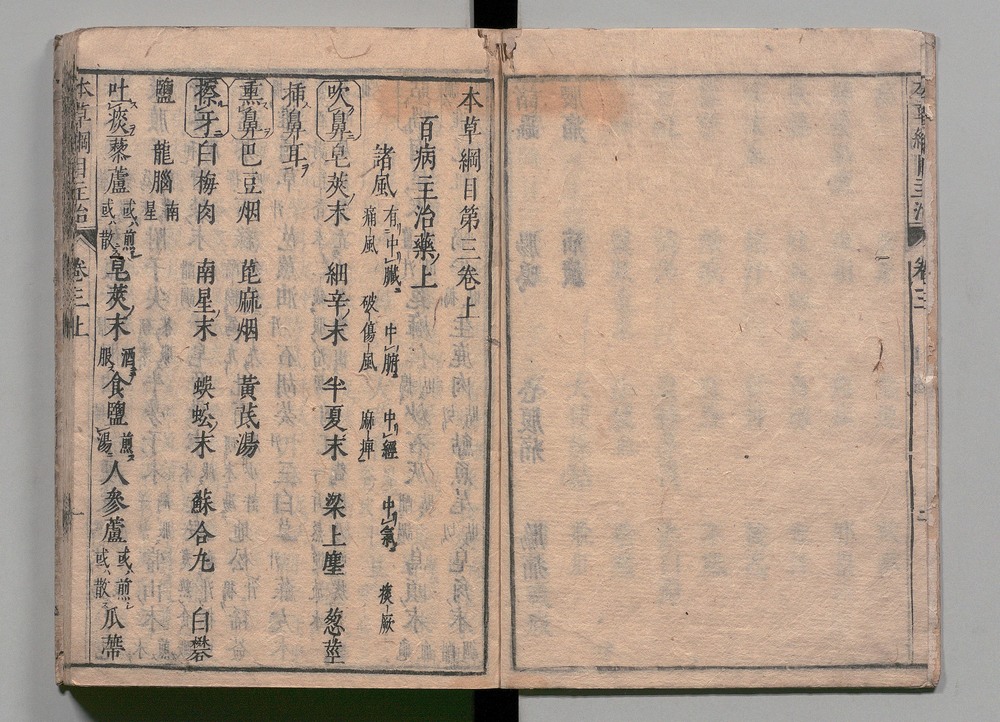 本草綱目第三卷上
百病主治藥上
諸風 有中臟 中腑 中經 中氣 痰厥
痛風 破傷風 麻痺
吹鼻 皂莢末 細辛末 半夏末 梁上塵 葱莖
插鼻耳
熏鼻 巴豆烟 萆麻烟 黃芪湯
擦牙 白梅肉 南星末 蜈蚣末 蘇合丸 白礬
鹽 龍腦 南星
吐痰 藜蘆 或煎或散 皂莢末 酒服 食鹽 煎湯 人參蘆 或煎或散 瓜蒂
本草綱目主治 卷三上